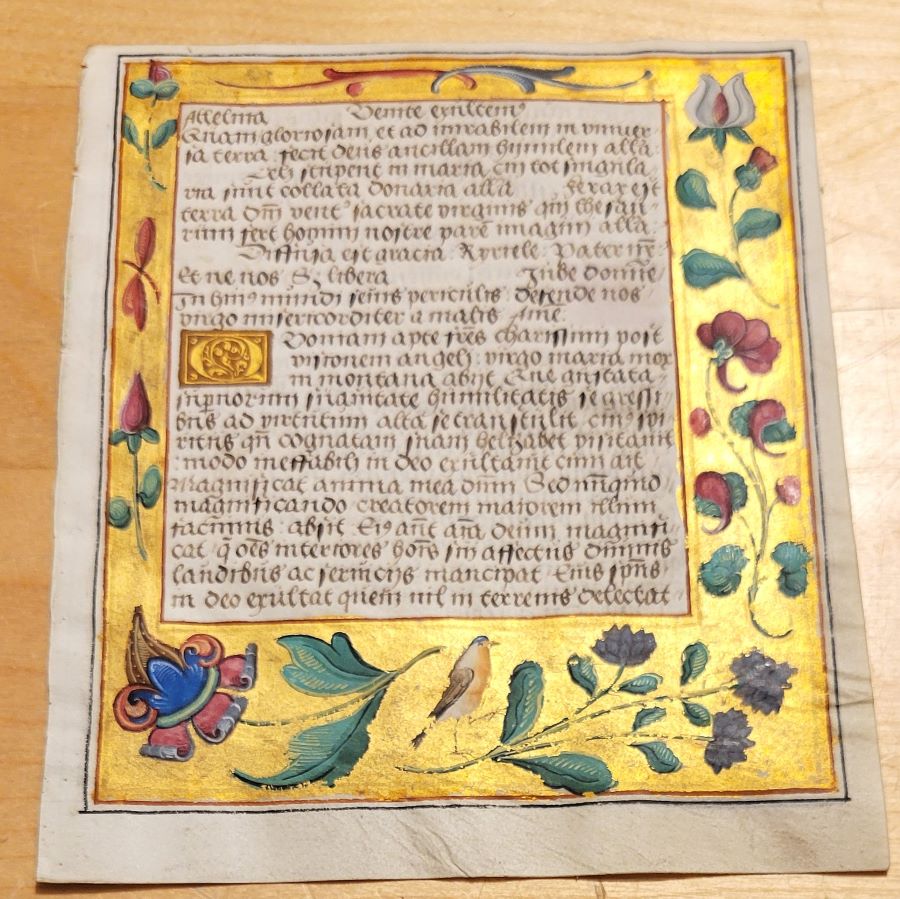 Alleluia Venite exultem9
Quam gloriosam et ad mirabilem in univer
sa terra fecit deus ancillam humilem alla
Celi stupent in maria cui tot singula
ria sunt collata donaria alla ferax est
terra dni vent sacrate virginis
rium fert homini nostre pare imagini alla
Diffusa est gracia Kyriele Pater nr
Et ne nos S libera Jube domne
In hui9 mundi seuis periculis defende nos
virgo misericorditer a malis Ame
O Domini apte fres charissimi post
visionem angeli virgo maria mox
in montana abijt Que gustata
supnorum suavitate humilitatis se gressi
bus ad virtutum alta se transtulit spi
ritus cognatam suam helizabet visitauit
modo ineffabili in deo exultauit cum ait
Magnificat anima mea dnm Sed
magnificando creatorem maiorem illum
facimus absit Ei9 ait deum magnifi
cat q oes interiores affectus diuinis
laudibus ac seruicijs mancipat Eius spus
in deo exultat quem nil in terrenis delectat